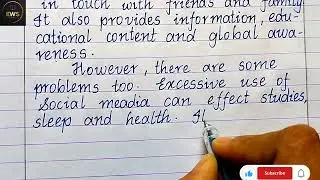 in touch with friends and family
It also provides information, edu-
cational content and global awa-
reness.
However, there are some
problems too. Excessive use of
Social meadia can effect studies,
sleep and health. It
EWS